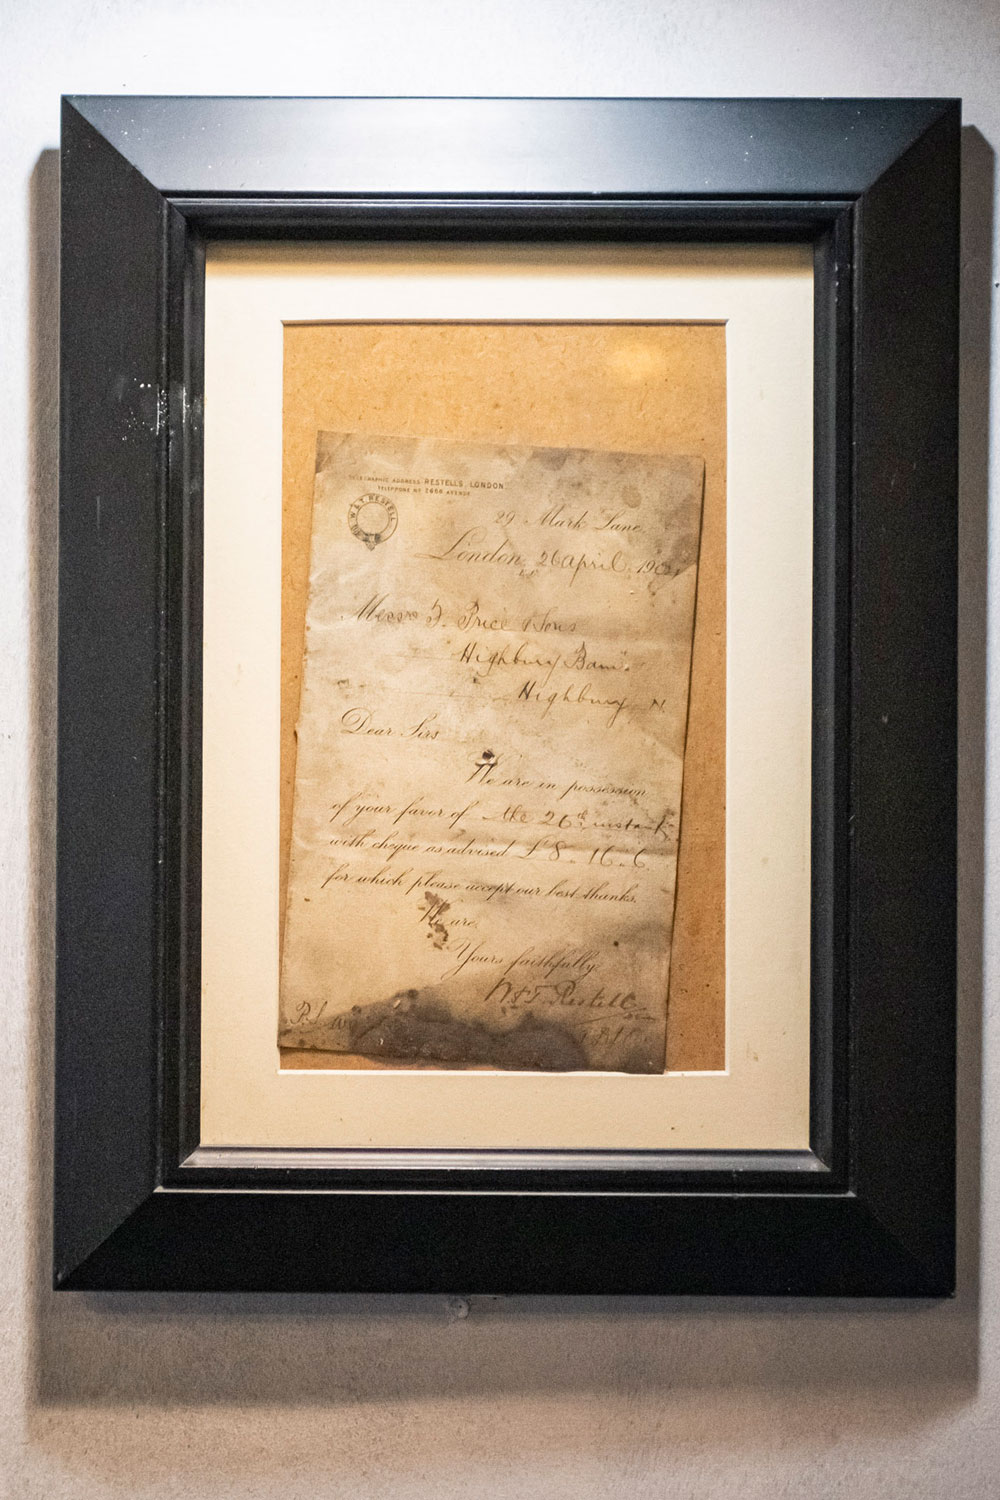 TELEGRAPHIC ADDRESS RESTELLS, LONDON.
TELEPHONE Nº 2656 AVENUE
W. & T. RESTELL
29 Mark Lane
London, 26 April, 190
Messrs F. Price & Sons
Highbury Barn
Highbury N.
Dear Sirs
We are in possession
of your favor of the 26th instant
with cheque as advised £8.16.6
for which please accept our best thanks.
We are,
Yours faithfully
W & T. Restell